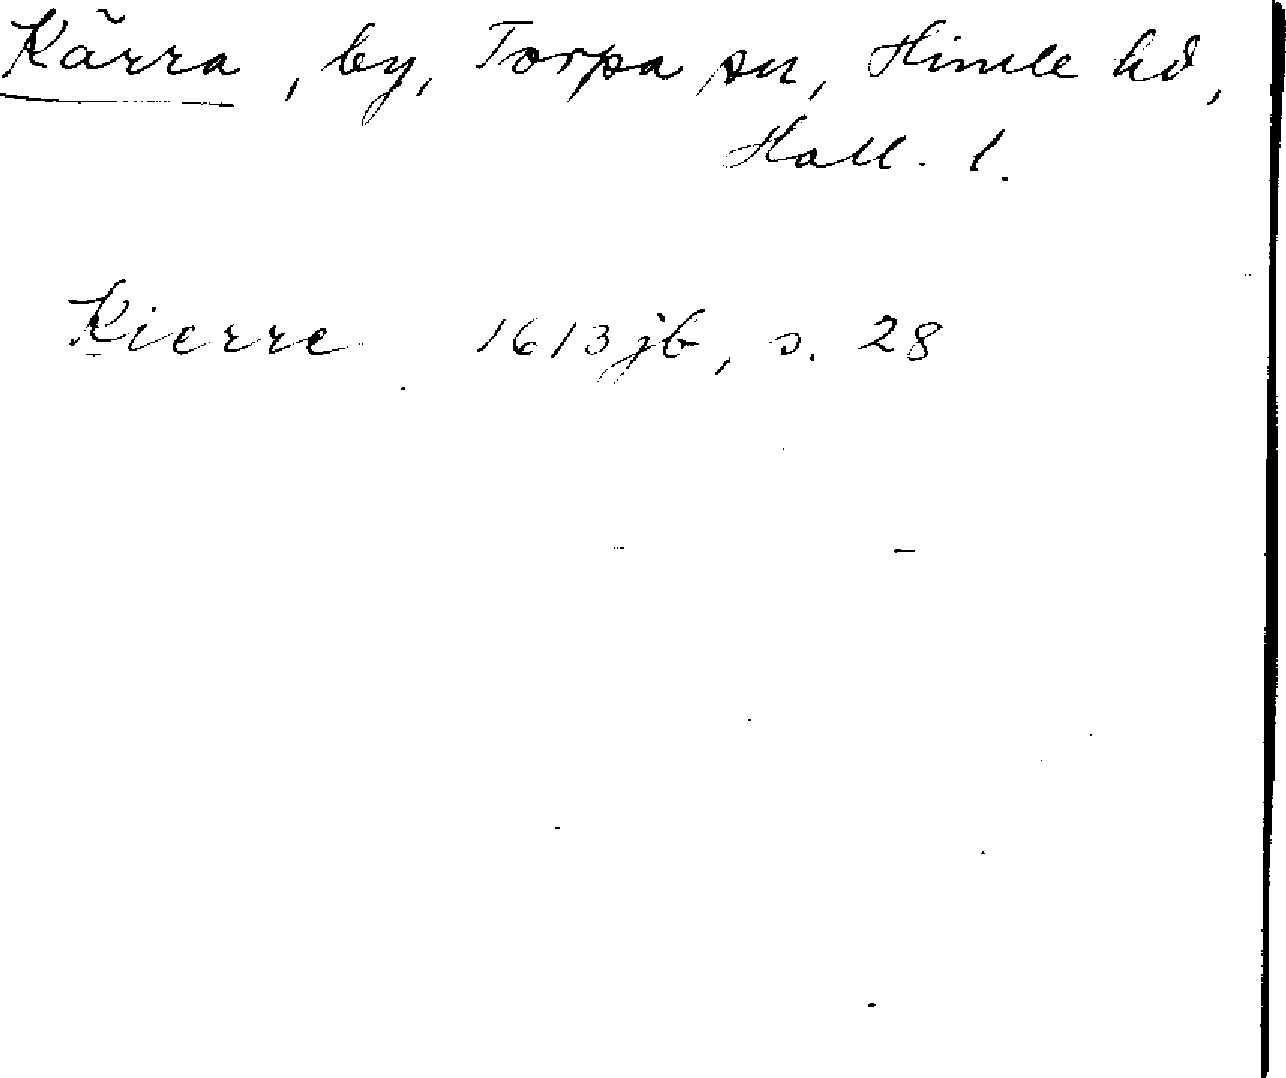 Kärra, by, Torpa sn, Himle hd,
Hall. l.
Kierre 1613 jb, s. 28